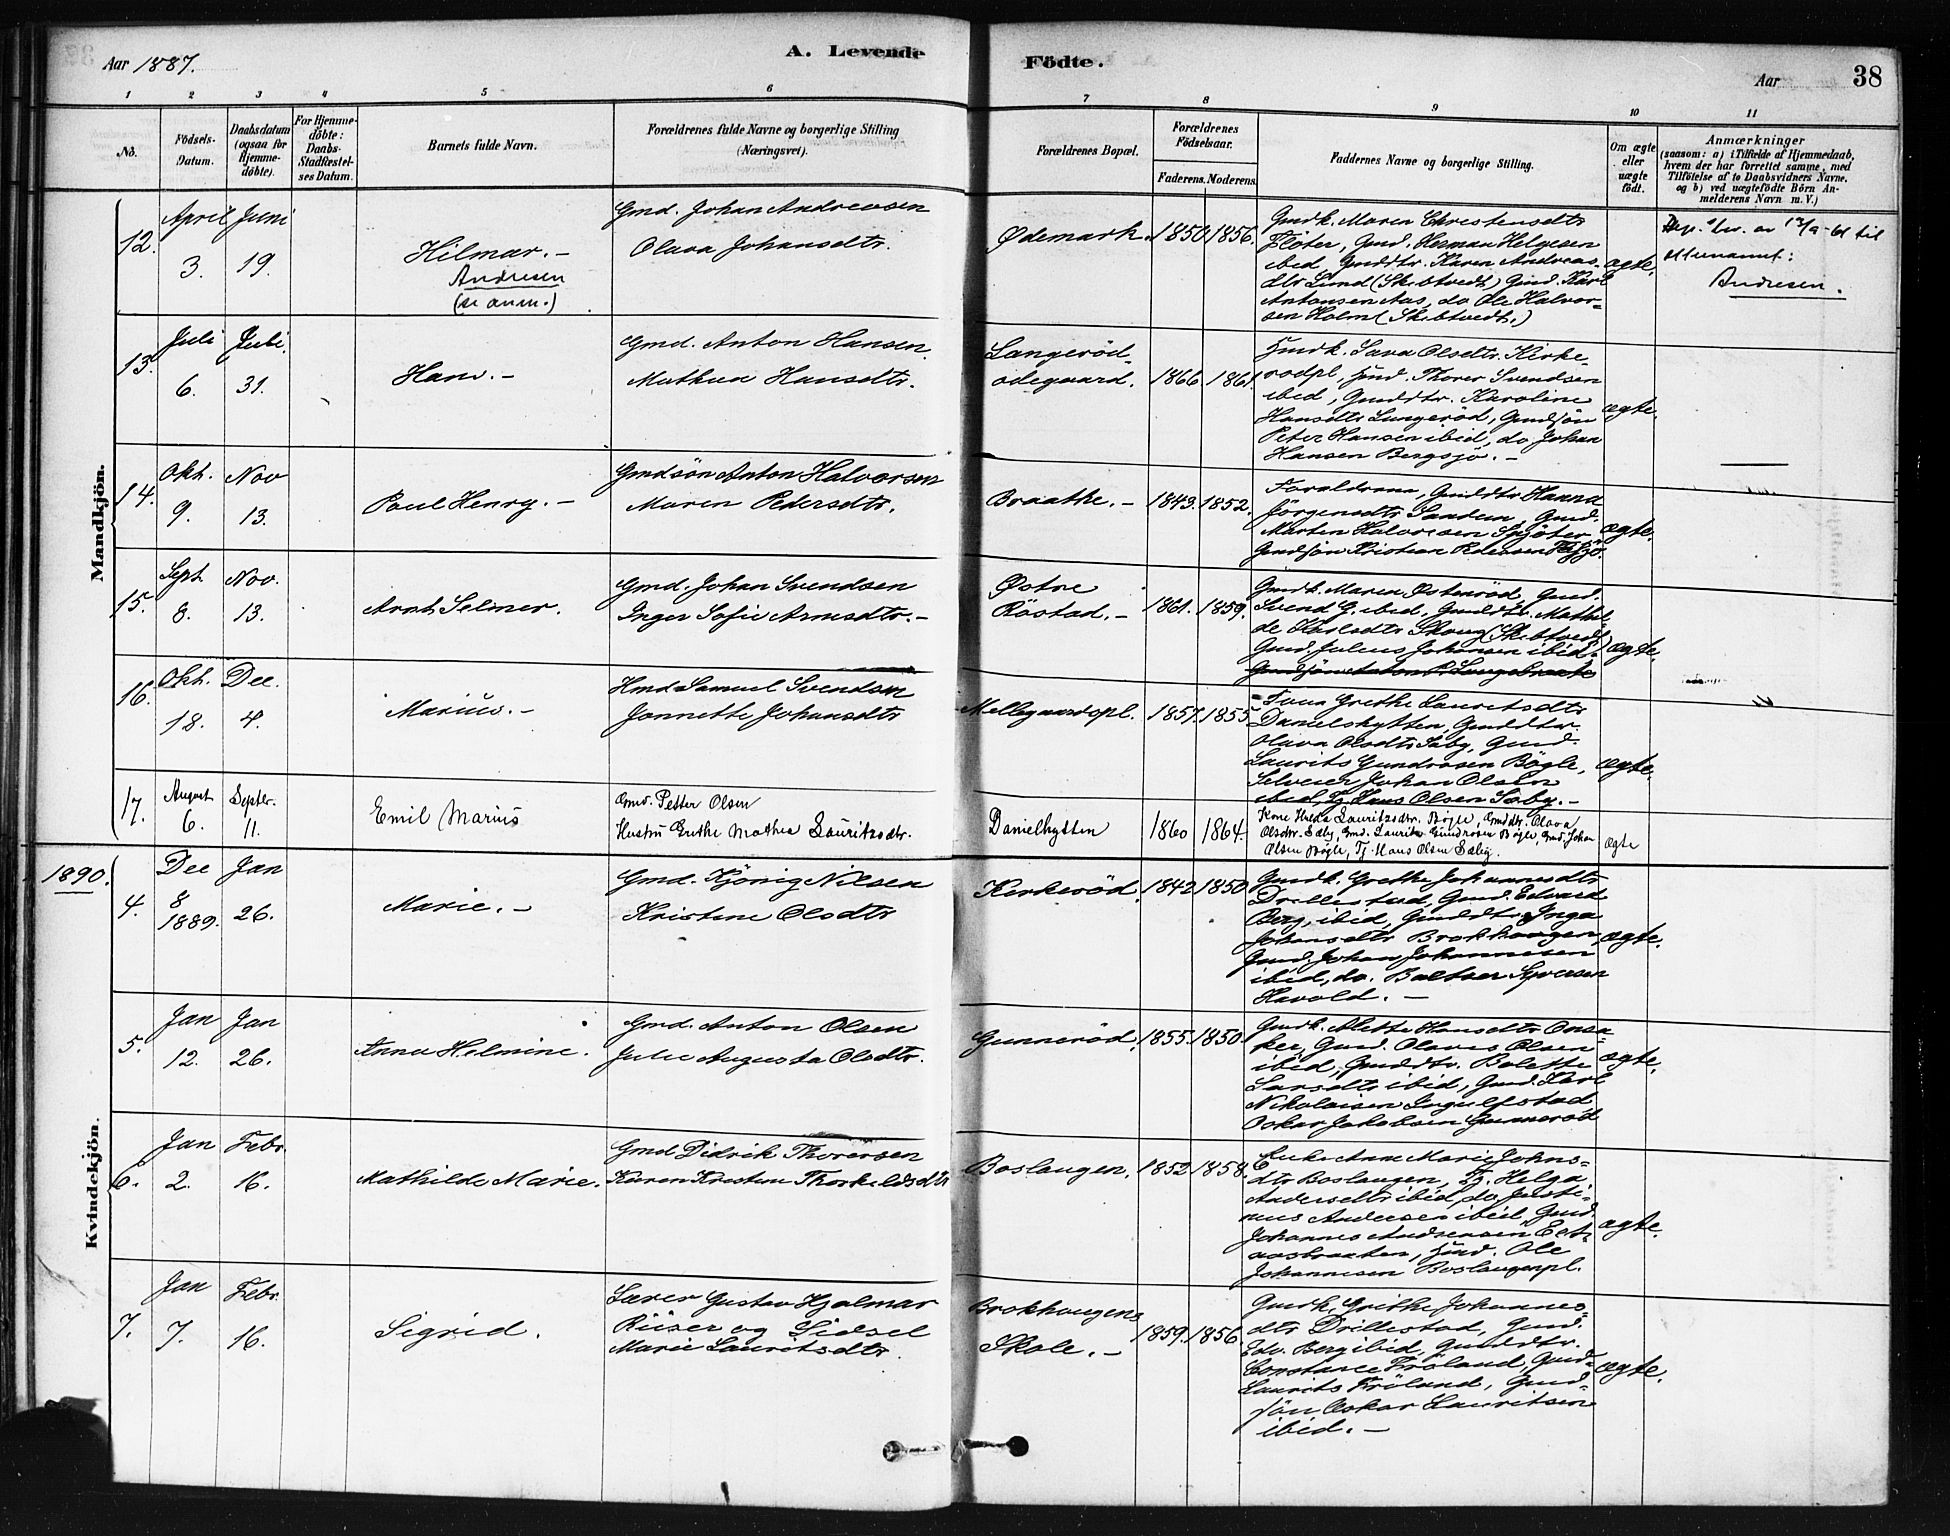 Aar 1887.
A. Levende
Födte.
Aar
38
1 2 3 4 5 6 7 8 9 10 11
No.
Födsels-
Datum.
Daabsdatum
(ogsaa for
Hjemme-
döbte).
For Hjemme-
döbte:
Daabs-
Stadfæstel-
ses Datum.
Barnets fulde Navn.
Forældrenes fulde Navne og borgerlige Stilling
(Næringsvei).
Forældrenes Bopæl.
Forældrenes
Födselsaar.
Faderens. Moderens.
Faddernes Navne og borgerlige Stilling.
Om ægte
eller
uægte
födt.
Anmærkninger
(saasom: a) i Tilfælde af Hjemmedaab,
hvem der har forrettet samme, med
Tilföielse af to Daabsvidners Navne.
og b) ved uægtefödte Börn An-
melderens Navn m. V.)
Mandkjön.
12.
April
3.
Juni
19.
Hilmar. -
Andresen
(se anm.)
Gmd. Johan Andreasen
Olava Johansdtr.
Ødemark.
1850
1856.
Gmdk. Maren Christensdtr
Fløter, Gmd. Herman Helgesen
ibid, Gmddtr. Karen Andreas-
dtr Lund (Skibtvedt) Gmd. Karl
Antonsen Aas, do Ole Halvor-
sen Holm (Skibtvedt.)
ægte.
til
etternavnet:
Andresen.
13.
Juli
6.
Juli.
31.
Hans. -
Gmd. Anton Hansen.
Mathea Hansdtr.
Langeröd-
ödegaard.
1866
1861.
Hmdk. Lava Olsdtr. Kirke-
rödpl, Hmd. Thorer Svendsen
ibid, Gmddtr. Karoline
Hansdtr Langeröd, Gmdsön
Peter Hansen ibid, do Johan
Hansen Bergsjö. -
ægte.
14.
Okt.
9.
Nov
13.
Paul Henry. -
Gmdsön Anton Halvorsen
Maren Pedersdtr.
Braathe. -
1843.
1852.
Forældrene, Gmddtr Hanna
Jörgensdtr Sandem, Gmd.
Marten Halvorsen
Gmdsön Kristian Pedersen
ægte.
15.
Sept.
8.
Nov.
13.
Arnt Selmer.
Gmd. Johan Svendsen
Inger Sofie Arnesdtr. -
Østre
Röstad. -
1861.
1859.
Gmdk. Maren Osteröd, Gmd.
Svend G. ibid, Gmddtr. Mathil-
de Karlsdtr Skaug (Skibtvedt)
Gmd. Julius Johansen ibid.
ægte.
16.
Okt.
18.
Dec.
4.
Marius. -
Hmd Samuel Svendsen
Jannette Johansdtr
Mellegaardspl.
1857.
1855
Grethe Lauritsdtr
Danielshytten, Gmddtr.
Olava Olsdtr Säby, Gmd.
Laurits Gundrosen Bögle,
Selveier Johan Olsen
ibid, Tj. Hans Olsen Säby. -
ægte.
17.
August
6.
Septbr.
11.
Emil Marius
Gmd. Petter Olsen
Hustru Grethe Mathea Lauritzsdtr.
Danielhytten
1860
1864.
Kone Hilda Lauritzsdtr. Bögle, Gmddtr. Olava
Olsdtr. Sæby, Gmd. Lauritz Gundrosen Bögle, Gmd. Johan
Olsen Bögle, Tj. Hans Olsen Sæby.
ægte
1890.
Kvindekjön.
4.
Dec
8
1889.
Jan
26.
Marie. -
Gmd. Kjönig Nilsen
Kristine Olsdtr
Kirkeröd.
1842
1850
Gmdk. Grethe Johannesdtr
Drillestad, Gmd. Edvard
Berg, ibid, Gmddtr. Inga
Johansdtr Brokhaugen,
Gmd. Johan Johannesen
ibid, do. Baltzer Syversen
Harold. -
ægte.
5.
Jan
12.
Jan
26.
Anna Helmine.
Gmd. Anton Olsen
Julie Augusta Olsdtr.
Gunneröd.
1855.
1850
Gmdk. Alette Hansdtr Onsa-
ker, Gmd. Olaves Olsen
ibid, Gmddtr. Bolette
Larsdtr ibid, Gmd. Karl
Nikolaisen Ingulfstad
Oskar Jakobsen Gunneröd
ægte.
6.
Jan
2.
Febr.
16.
Mathilde Marie.
Gmd Didrik Thoresen
Karen Kristine Thorkildsdtr
Boslangen.
1852
1858.
Enke Anne Marie Johns-
dtr Boslangen, Tj. Helga
Andersdtr ibid, do, Justi-
nus Andersen ibid, Gmd.
Johannes Andersen
Hmd. Ole
Johannesen Boslangenpl.
ægte.
7.
Jan
7.
Febr.
16.
Sigrid.
Lærer Gustav Hjalmar
Riiser og Sidsel
Marie Lauritsdtr.
Brokhaugens
Skole. -
1859.
1856.
Gmdk, Grethe Johannes-
dtr Drillestad, Gmd.
Edv. Berg ibid, Gmddtr.
Constance Fröland, Gmd-
Laurits Fröland, Gmd-
sön Oskar Lauritsen
ibid. -
ægte.